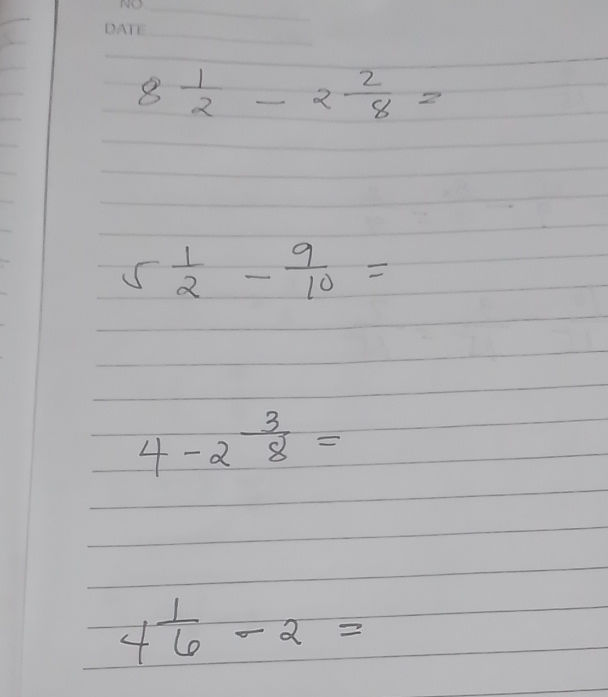 NO
DATE
8 1/2 - 2 2/8 =
5 1/2 - 9/10 =
4 - 2 3/8 =
4 1/6 - 2 =